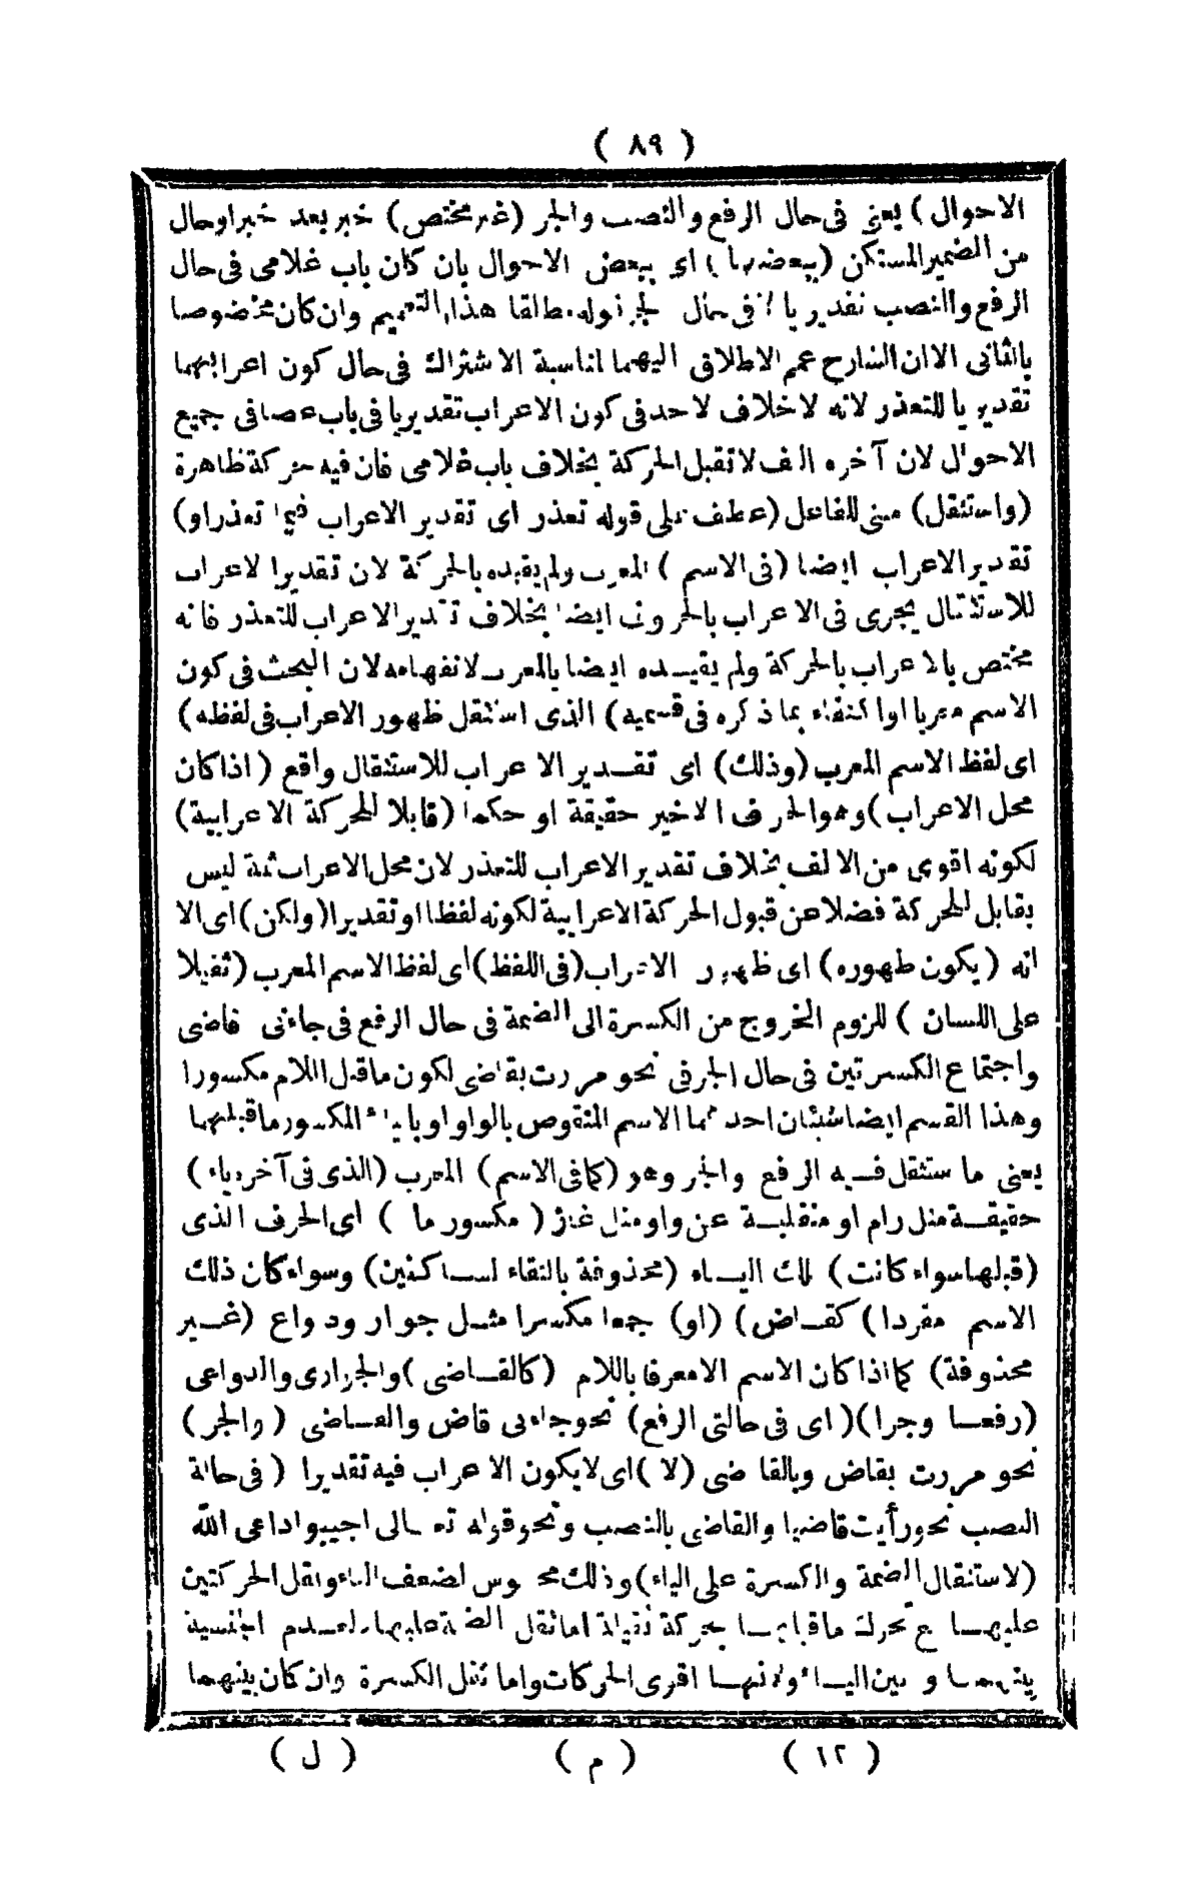 ( ٨٩ )
الاحوال ) يعنى فى حال الرفع والنصب والجر ( غير مختص ) خبر بعد خبر او حال
من الضمير المستكن ( ببعضها ) اى ببعض الاحوال بان كان باب غلامى فى حال
الرفع والنصب تقديريا فى حال الجر قوله مطلقا هذا التعميم وان كان مخصوصا
بالثانى الا ان الشارح عمم الاطلاق اليهما لمناسبة الاشتراك فى حال كون اعرابهما
تقديريا للتعذر لانه لا خلاف لاحد فى كون الاعراب تقديريا فى باب عصا فى جميع
الاحوال لان آخره الف لا تقبل الحركة بخلاف باب غلامى فان فيه حركة ظاهرة
( واستثقل ) مبنى للفاعل ( عطف على قوله تعذر اى تقدير الاعراب فيما تعذر او )
تقدير الاعراب ايضا ( فى الاسم ) المعرب ولم يقيده بالحركة لان تقدير الاعراب
للاستثقال يجرى فى الاعراب بالحروف ايضا بخلاف تقدير الاعراب للتعذر فانه
مختص بالاعراب بالحركة ولم يقيده ايضا بالمعرب لانفهامه لان البحث فى كون
الاسم معربا او اكتفاء بما ذكره فى قسيمه ) الذى استثقل ظهور الاعراب فى لفظه )
اى لفظ الاسم المعرب ( وذلك ) اى تقدير الاعراب للاستثقال واقع ( اذا كان
محل الاعراب ) وهو الحرف الاخير حقيقة او حكما ( قابلا للحركة الاعرابية )
لكونه اقوى من الالف بخلاف تقدير الاعراب للتعذر لان محل الاعراب ثمة ليس
بقابل للحركة فضلا عن قبول الحركة الاعرابية لكونه لفظا او تقديرا ( ولكن ) اى الا
انه ( يكون ظهوره ) اى ظهور الاعراب ( فى اللفظ ) اى لفظ الاسم المعرب ( ثقيلا
على اللسان ) للزوم الخروج من الكسرة الى الضمة فى حال الرفع فى جاءنى قاضى
واجتماع الكسرتين فى حال الجر فى نحو مررت بقاضى لكون ما قبل اللام مكسورا
وهذا القسم ايضا شيئان احدهما الاسم المنقوص بالواو او بالياء المكسور ما قبلهما
يعنى ما ستثقل فيه الرفع والجر وهو ( كما فى الاسم ) المعرب ( الذى فى آخره ياء )
حقيقة مثل رام او منقلبة عن واو مثل غاز ( مكسور ما ) اى الحرف الذى
( قبلها سواء كانت ) تلك الياء ( محذوفة بالتقاء الساكنين ) وسواء كان ذلك
الاسم مفردا ) كقاض ) ( او ) جمعا مكسرا مثل جوار ودواع ( غير
محذوفة ) كما اذا كان الاسم الا معرفا باللام ( كالقاضى ) والجوارى والدواعى
( رفعا وجرا ) ( اى فى حالتى الرفع ) نحو جاءنى قاض والقاضى ( والجر )
نحو مررت بقاض وبالقاضى ( لا ) اى لا يكون الاعراب فيه تقديرا ( فى حالة
النصب نحو رأيت قاضيا والقاضى بالنصب ونحو قوله تعالى اجيبوا داعى الله
( لاستثقال الضمة والكسرة على الياء ) وذلك محسوس لضعف الياء وثقل الحركتين
عليها مع تحرك ما قبلها بحركة ثقيلة اما ثقل الضمة عليها فلعدم الجنسية
بينهما وبين الياء ولانها اقوى الحركات واما ثقل الكسرة وان كان بينهما
( ١٢ ) ( م ) ( ل )